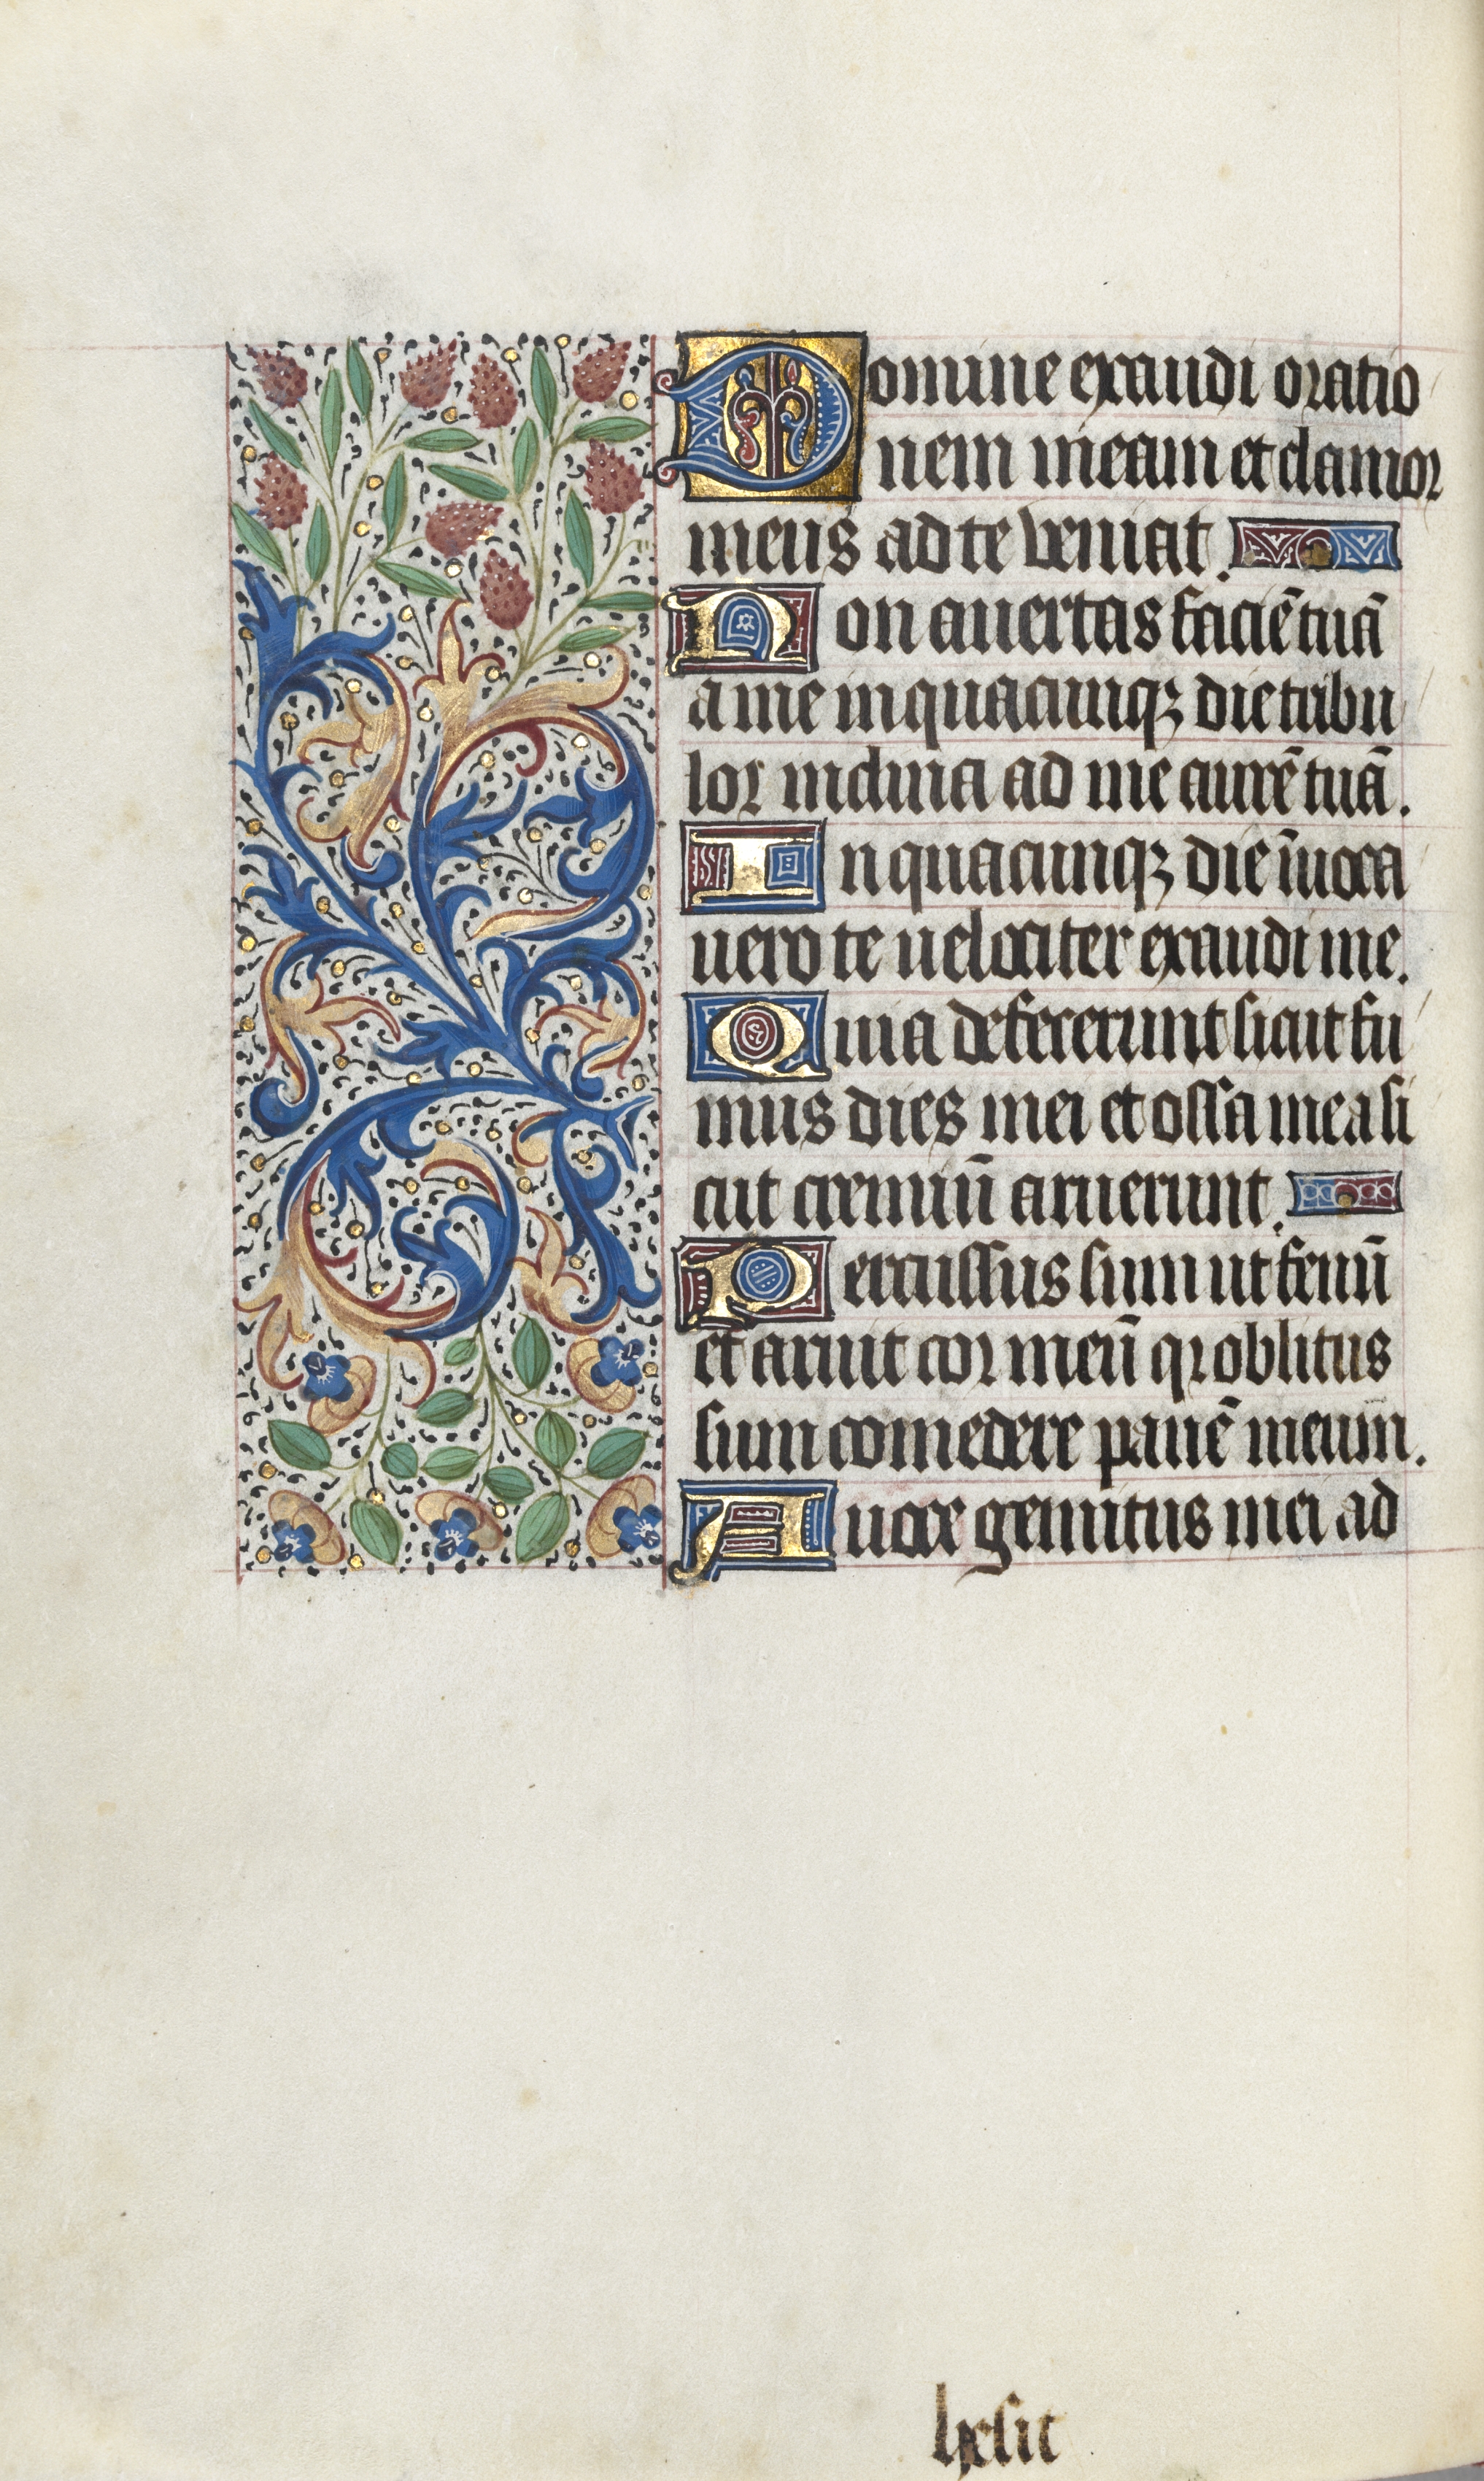 Domine exaudi oratio
nem meam et clamor
meus ad te veniat.
Non auertas faciē tuā
a me in quacunqꝫ die tribu
lor inclina ad me aurē tuā.
In quacunqꝫ die īuoca
uero te uelociter exaudi me.
Quia defecerunt sicut fu
mus dies mei et ossa mea si
cut cremiū aruerunt.
Percussus sum ut fenū
et aruit cor meū qꝛ oblitus
sum comedere panē meum.
A uoce gemitus mei ad
hesit